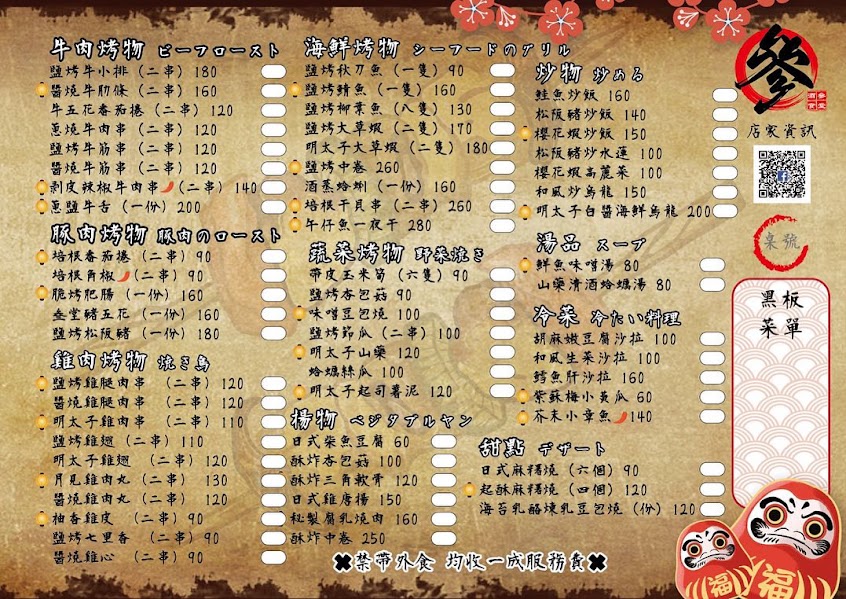 牛肉烤物 ビーフロースト
鹽烤牛小排（二串）180
醬燒牛肋條（二串）160
牛五花番茄捲（二串）120
蔥燒牛肉串（二串）120
鹽烤牛筋串（二串）120
醬燒牛筋串（二串）120
剝皮辣椒牛肉串（二串）140
蔥鹽牛舌（一份）200
豚肉烤物 豚肉のロースト
培根番茄捲（二串）90
培根角椒（二串）90
脆烤肥腸（一份）160
叁堂豬五花（一份）160
鹽烤松阪豬（一份）180
雞肉烤物 焼き鳥
鹽烤雞腿肉串（二串）120
醬燒雞腿肉串（二串）120
明太子雞肉串（二串）110
鹽烤雞翅（二串）110
明太子雞翅（二串）120
月見雞肉丸（二串）130
醬燒雞肉丸（二串）120
柚香雞皮（二串）90
鹽烤七里香（二串）90
醬燒雞心（二串）90
海鮮烤物 シーフードのグリル
鹽烤秋刀魚（一隻）90
鹽烤鯖魚（一隻）160
鹽烤柳葉魚（八隻）130
鹽烤大草蝦（二隻）170
明太子大草蝦（二隻）180
鹽烤中卷 260
酒蒸蛤蜊（一份）160
培根干貝串（二串）260
午仔魚一夜干 280
蔬菜烤物 野菜焼き
帶皮玉米筍（六隻）90
鹽烤杏包菇 90
味噌豆包燒 100
鹽烤節瓜（二串）100
明太子山藥 120
蛤蠣絲瓜 100
明太子起司薯泥 120
揚物 ベジタブルヤン
日式柴魚豆腐 60
酥炸杏包菇 100
酥炸三角軟骨 120
日式雞唐揚 150
秘製腐乳燒肉 160
酥炸中卷 250
炒物 炒める
鮭魚炒飯 160
松阪豬炒飯 140
櫻花蝦炒飯 150
松阪豬炒水蓮 100
櫻花蝦高麗菜 100
和風炒烏龍 150
明太子白醬海鮮烏龍 200
湯品 スープ
鮮魚味噌湯 80
山藥清酒蛤蠣湯 80
冷菜 冷たい料理
胡麻嫩豆腐沙拉 100
和風生菜沙拉 100
鱈魚肝沙拉 160
紫蘇梅小黃瓜 60
芥末小章魚 140
甜點 デザート
日式麻糬燒（六個）90
起酥麻糬燒（四個）120
海苔乳酪煉乳豆包燒（份）120
✖禁帶外食 均收一成服務費✖
叁
店家資訊
桌號
黑板
菜單
福
福